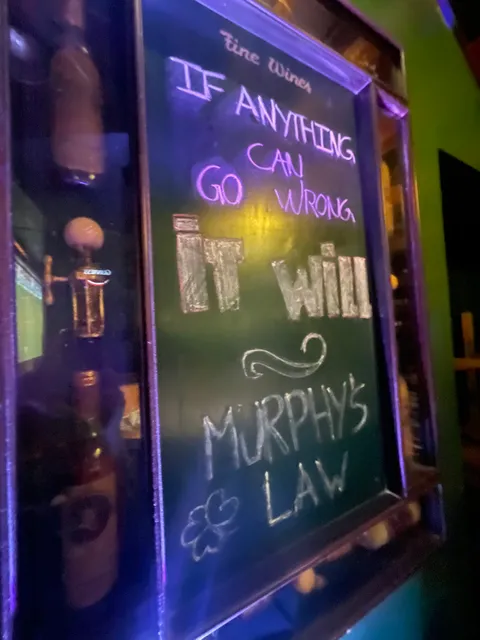 Fine Wines
IF ANYTHING
CAN
GO WRONG,
iT WiLL
MURPHY'S
LAW